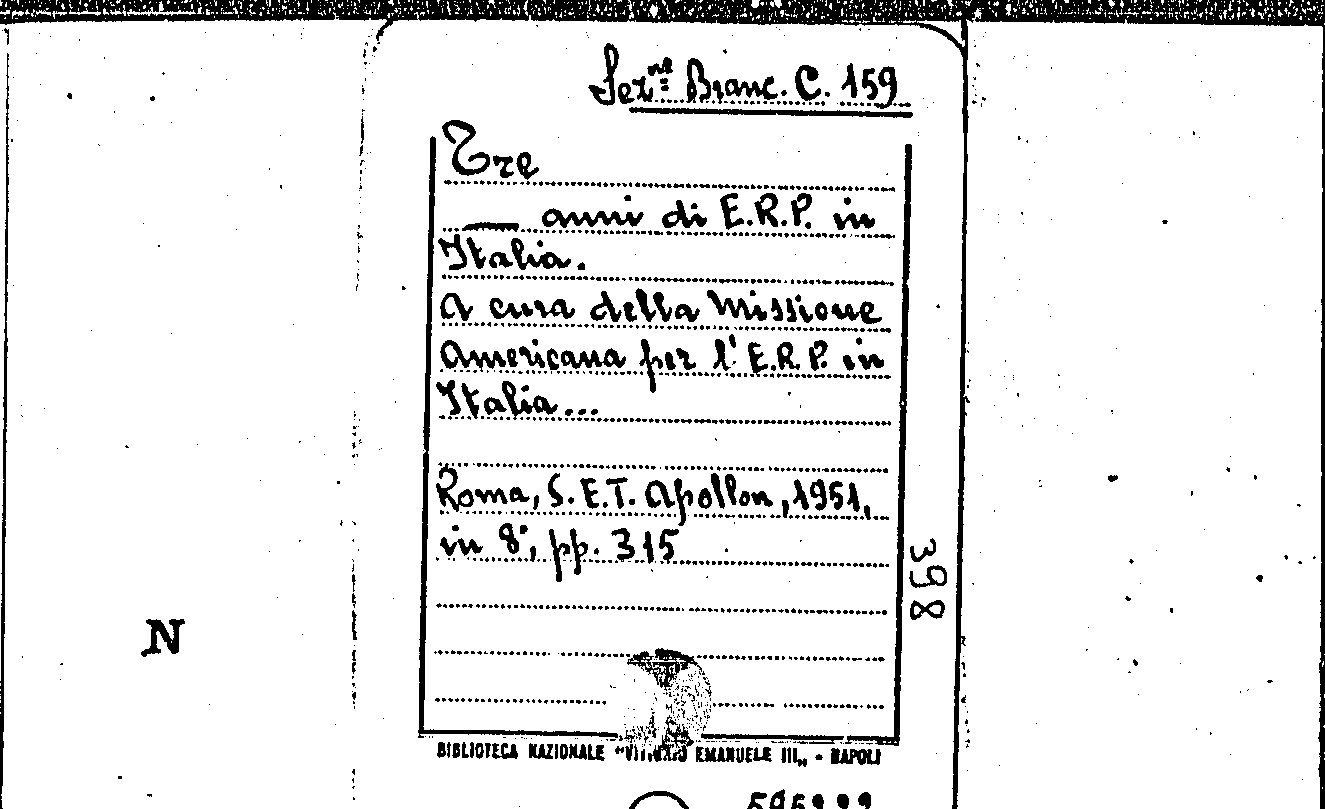 Sez.ne Branc. C. 159
Tre
___ anni di E.R.P. in
Italia.
A cura della Missione
Americana per l'E.R.P. in
Italia...
Roma, S.E.T. Apollon, 1951,
in 8°, pp. 315
398
N
BIBLIOTECA NAZIONALE "VITTORIO EMANUELE III„ - NAPOLI